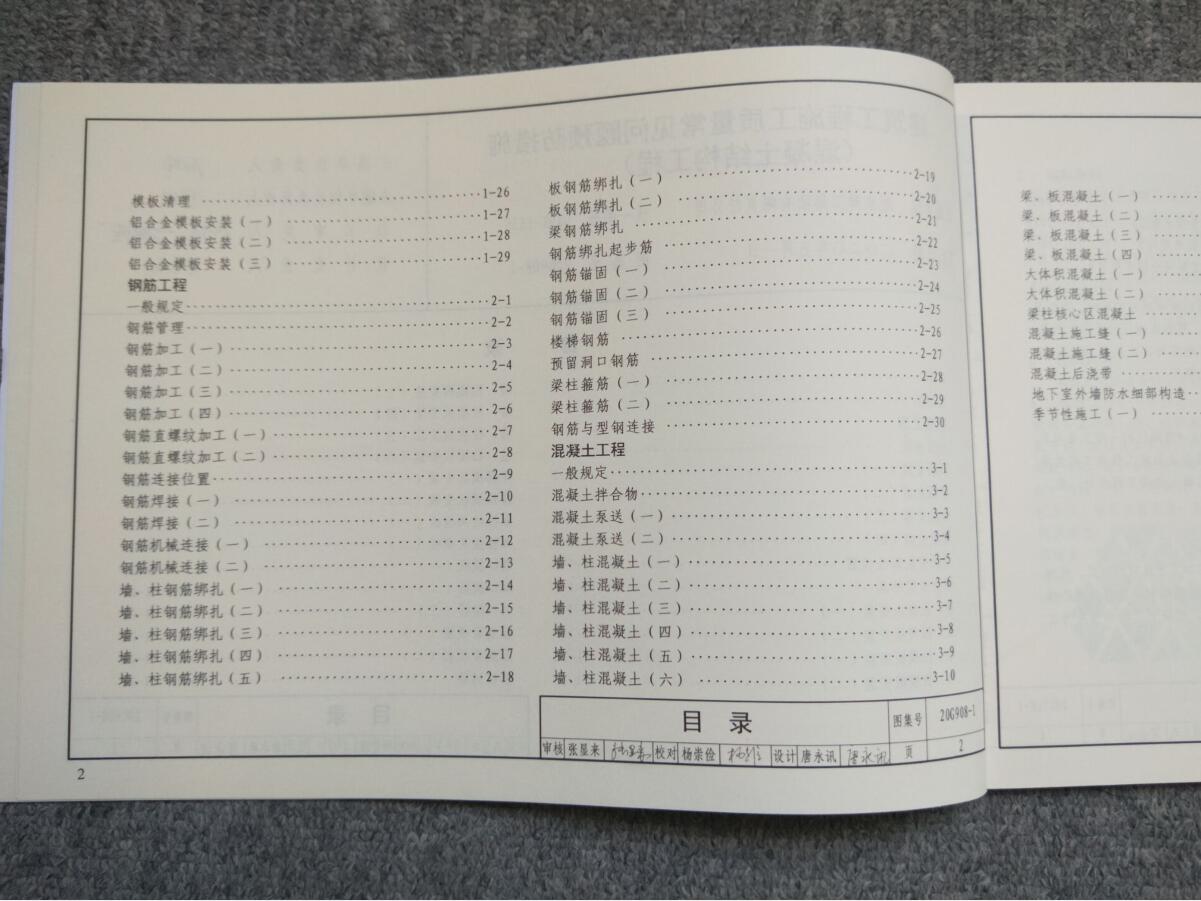 模板清理 1-26
铝合金模板安装（一） 1-27
铝合金模板安装（二） 1-28
铝合金模板安装（三） 1-29
钢筋工程
一般规定 2-1
钢筋管理 2-2
钢筋加工（一） 2-3
钢筋加工（二） 2-4
钢筋加工（三） 2-5
钢筋加工（四） 2-6
钢筋直螺纹加工（一） 2-7
钢筋直螺纹加工（二） 2-8
钢筋连接位置 2-9
钢筋焊接（一） 2-10
钢筋焊接（二） 2-11
钢筋机械连接（一） 2-12
钢筋机械连接（二） 2-13
墙、柱钢筋绑扎（一） 2-14
墙、柱钢筋绑扎（二） 2-15
墙、柱钢筋绑扎（三） 2-16
墙、柱钢筋绑扎（四） 2-17
墙、柱钢筋绑扎（五） 2-18
板钢筋绑扎（一） 2-19
板钢筋绑扎（二） 2-20
梁钢筋绑扎 2-21
钢筋绑扎起步筋 2-22
钢筋锚固（一） 2-23
钢筋锚固（二） 2-24
钢筋锚固（三） 2-25
楼梯钢筋 2-26
预留洞口钢筋 2-27
梁柱箍筋（一） 2-28
梁柱箍筋（二） 2-29
钢筋与型钢连接 2-30
混凝土工程
一般规定 3-1
混凝土拌合物 3-2
混凝土泵送（一） 3-3
混凝土泵送（二） 3-4
墙、柱混凝土（一） 3-5
墙、柱混凝土（二） 3-6
墙、柱混凝土（三） 3-7
墙、柱混凝土（四） 3-8
墙、柱混凝土（五） 3-9
墙、柱混凝土（六） 3-10
目录 图集号 20G908-1
审核 张显来 校对 杨崇俭 设计 唐永讯 唐永讯 页 2
2
梁、板混凝土（一）
梁、板混凝土（二）
梁、板混凝土（三）
梁、板混凝土（四）
大体积混凝土（一）
大体积混凝土（二）
梁柱核心区混凝土
混凝土施工缝（一）
混凝土施工缝（二）
混凝土后浇带
地下室外墙防水细部构造
季节性施工（一）